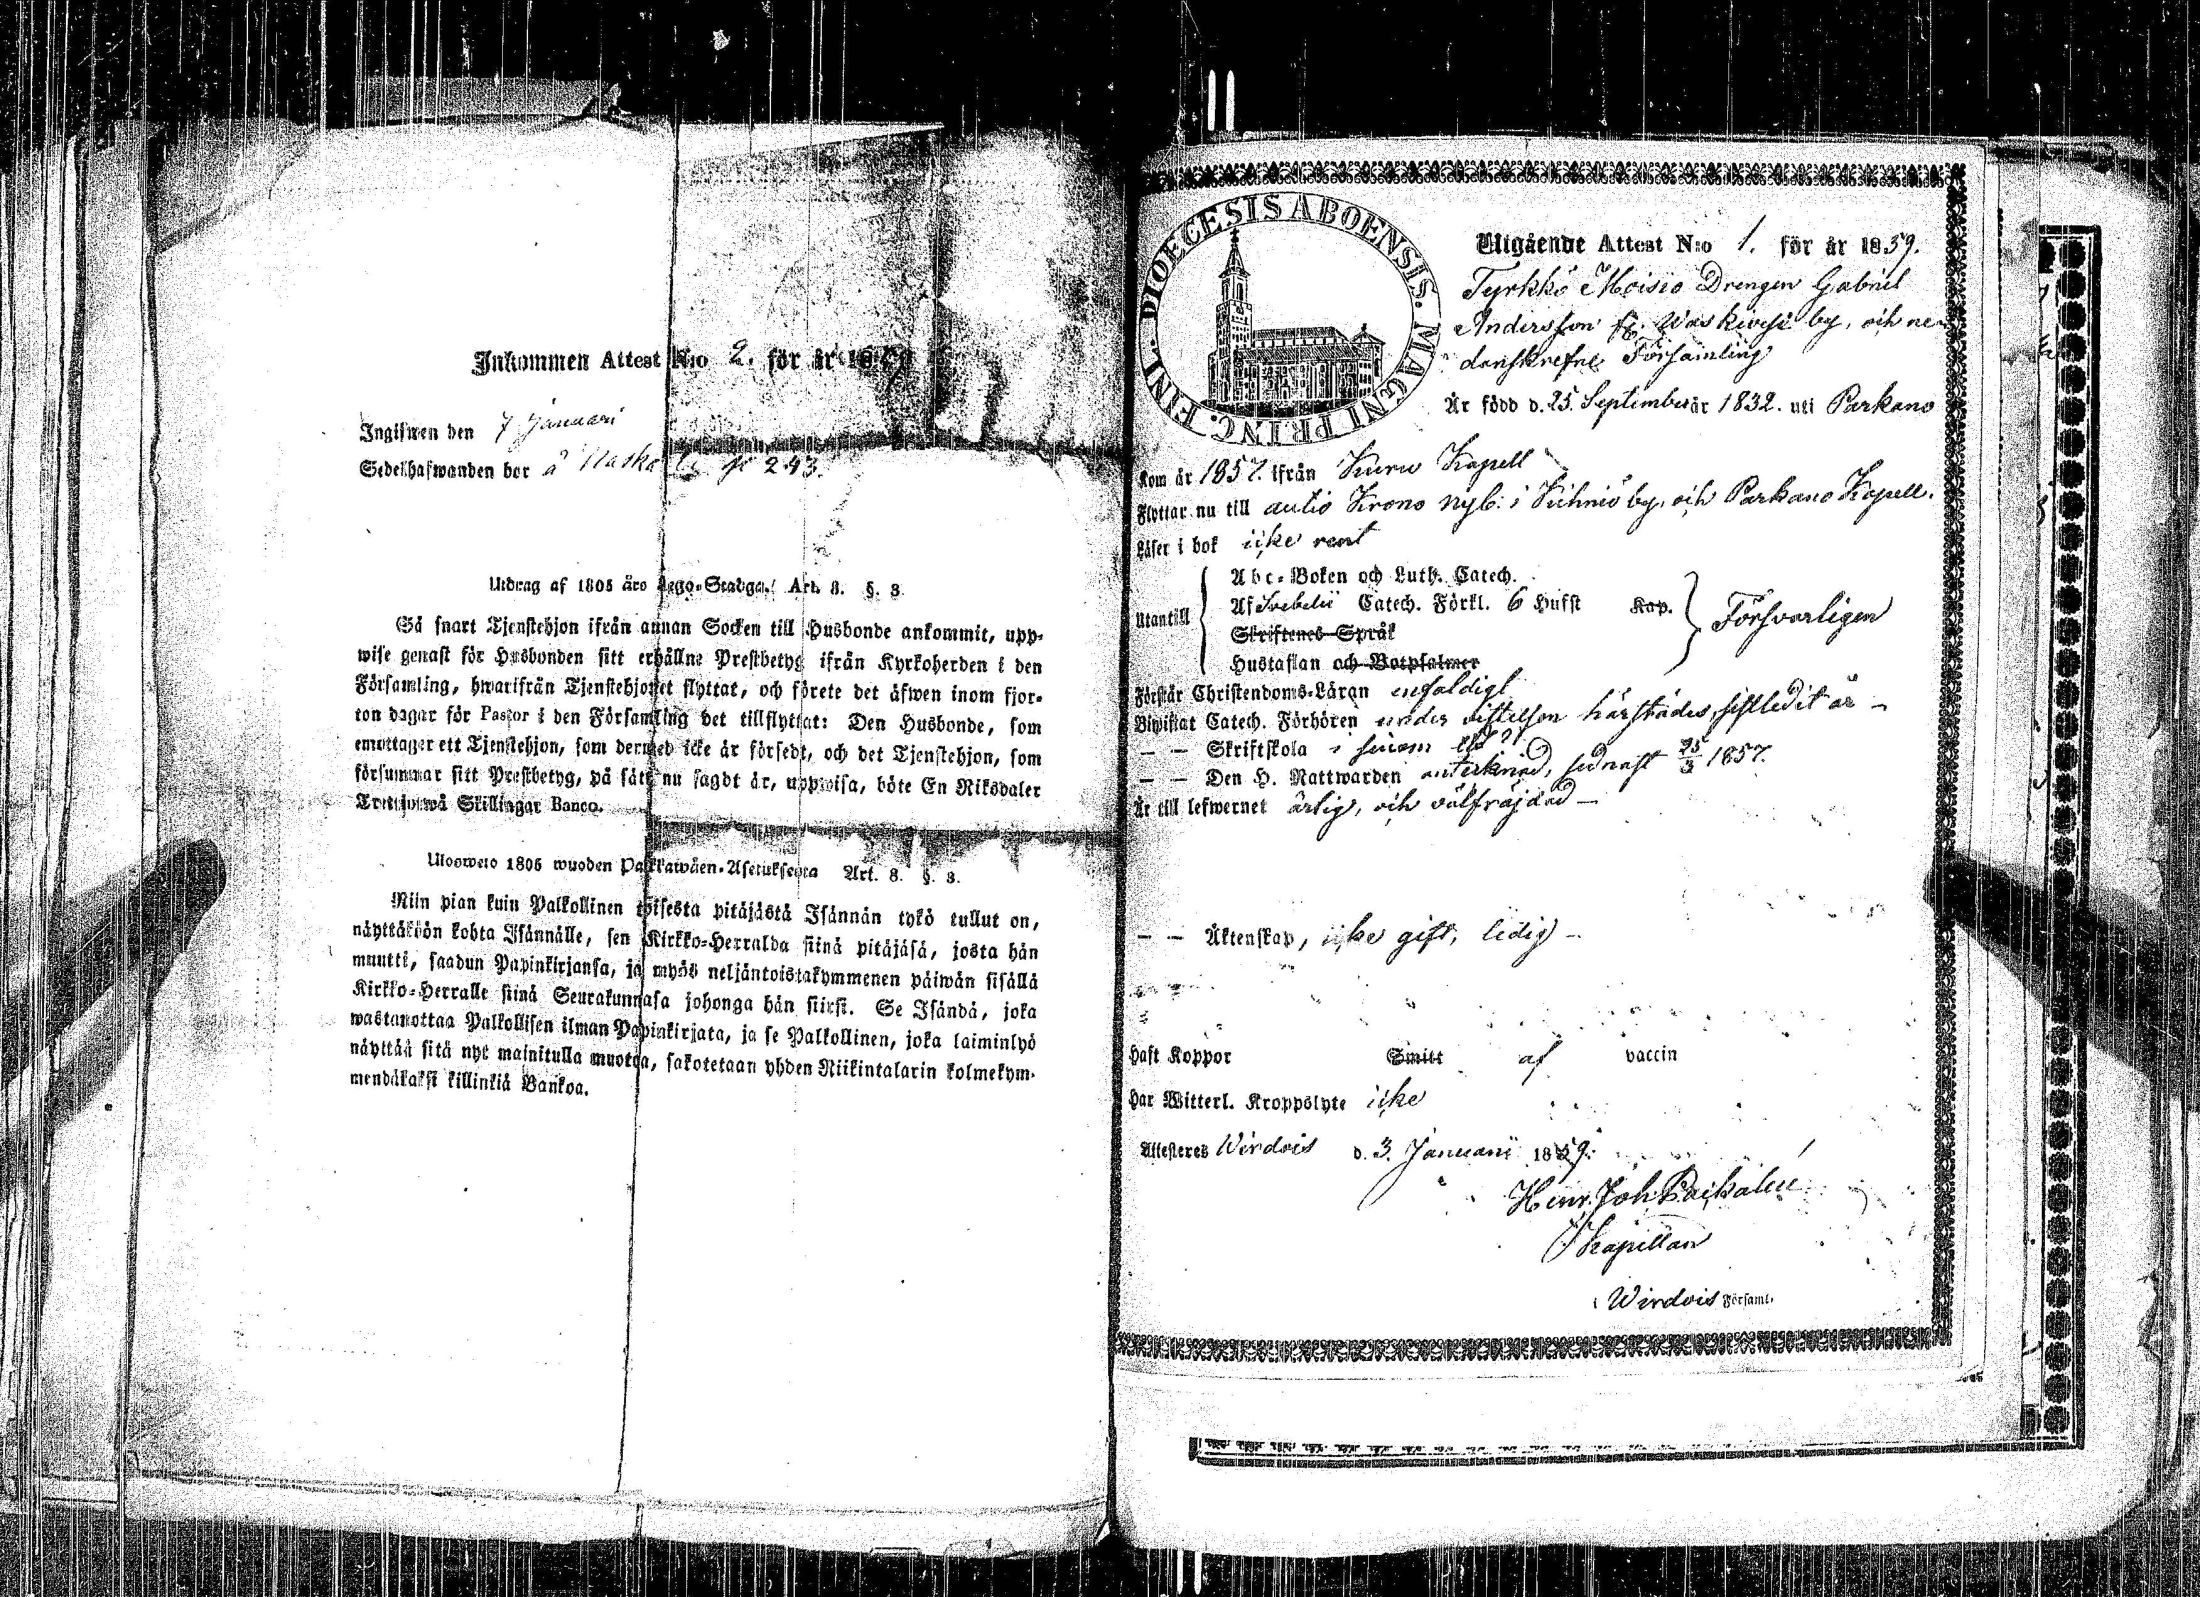 Inkommen Attest N:o 2. för år 1859
Ingifwen den 7 Januari
Sedelhafwanden bor å
p 243.
Utdrag af 1805 års Lego-Stadga, Art. 8. §. 3.
Så snart Tjenstehjon ifrån annan Socken till Husbonde ankommit, upp-
wise genast för Husbonden sitt erhållne Prestbetyg ifrån Kyrkoherden i den
Församling, hwarifrån Tjenstehjonet flyttat, och förete det äfwen inom fjor-
ton dagar för Pastor i den Församling det tillflyttat: Den Husbonde, som
emottager ett Tjenstehjon, som dermed icke är försedt, och det Tjenstehjon, som
försummar sitt Prestbetyg, på sätt nu sagdt är, uppwisa, böte En Riksdaler
Trettiotwå Skillingar Banco.
Ulosweto 1805 wuoden Palkkawäen-Asetuksesta Art. 8. §. 3.
Niin pian kuin Palkollinen toisesta pitäjästä Isännän tykö tullut on,
näyttäköön kohta Isännälle, sen Kirkko-Herralda siinä pitäjäsä, josta hän
muutti, saadun Papinkirjansa, ja myös neljäntoistakymmenen päiwän sisällä
Kirkko-Herralle siinä Seurakunnasa johonga hän siirsi. Se Isändä, joka
wastanottaa Palkollisen ilman Papinkirjata, ja se Palkollinen, joka laiminlyö
näyttää sitä nyt mainitulla muotoa, sakotetaan yhden Riikintalarin kolmekym-
mendäkaksi killinkiä Bankoa.
DIOECESIS ABOENSIS. MAGNI PRINC. FINL.
Utgående Attest N:o 1. för år 1859.
Tyrkkö Moisio Drengen Gabriel
Andersson fr. Waskivesi by, och ne-
danskrefne Församling
Är född d. 25. September år 1832. uti Parkano
Kom år 1857. ifrån Kuru Kapell
Flyttar nu till autio Krono nyb: i Kihniö by, och Parkano Kapell.
Läser i bok icke rent
Abc-Boken och Luth. Catech.
Utantill Af Svebelii Catech. Förkl. 6 Hufst Kap. Försvarligen
Skriftenes Språk
Hustaflan och Botpsalmer
Förstår Christendoms-Läran enfaldigt
Biwistat Catech. Förhören under vistelsen härstädes, sistledit år –
– – Skriftskola i sinom tid
– – Den H. Nattwarden antecknad, sednast 25/3 1857.
Är till lefwernet ärlig, och välfräjdad –
– – Äktenskap, icke gift, ledig –
Haft Koppor Smitt af vaccin
Har Witterl. Kroppslyte icke
Attesteres Wirdois d. 3. Januarii 1859.
Henr. Joh.
Kapellan
i Wirdois Församl.